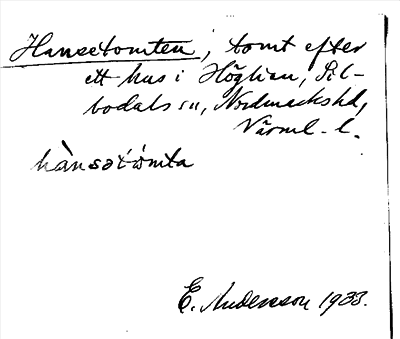 Hansetomten, tomt efter
ett hus i Höglian, Sil-
bodals sn, Nordmarks hd,
Värml. l.
hànsatómta
E. Andersson 1933.